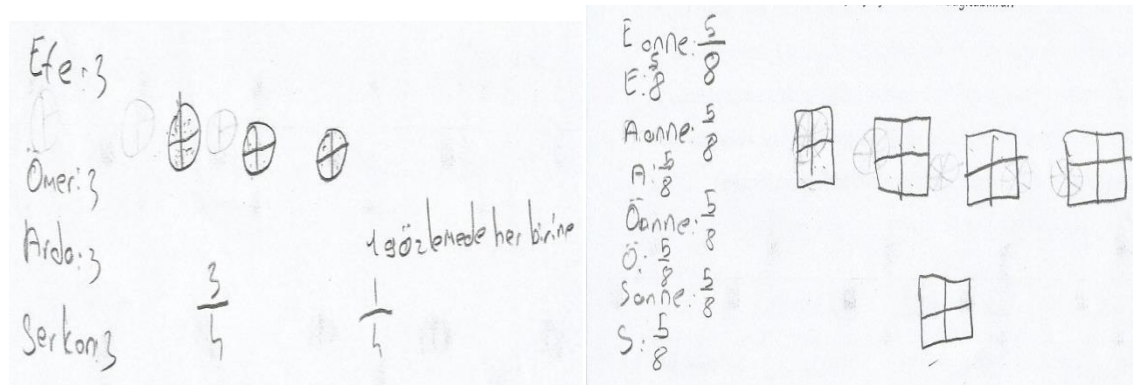 Efe: 3
Ömer: 3
Arda: 3
Serkan: 3
3/4
1/4
1 gözlemede her birine
E anne: 5/8
E: 5/8
A anne: 5/8
A: 5/8
Ö anne: 5/8
Ö: 5/8
S anne: 5/8
S: 5/8